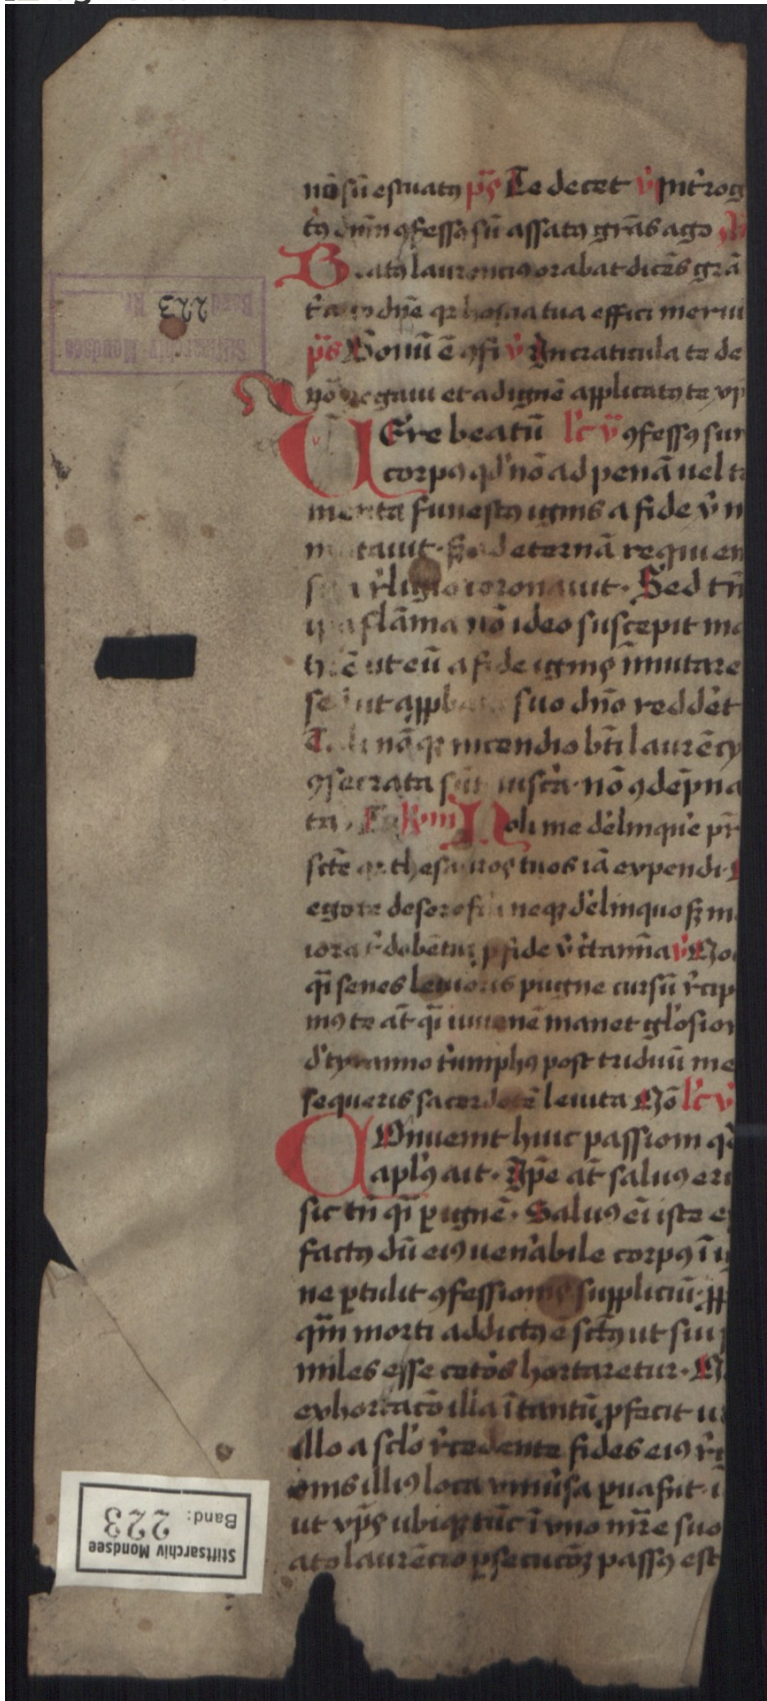 nō sū estuatꝯ ps̄ Te decet v̄ Int̄rog
tꝯ dn̄m ꝯfessꝯ sū assatꝯ grās ago
Beatꝯ laurenciꝯ orabat dicēs grā
dn̄e qr hostia tua effici merui
ps̄ Bonū ē ꝯfi v̄ In craticula te de
nō negaui et ad ignē applicatꝯ te xp
Vere beatū lc̄ v̄ ꝯfessꝯ sum
corpꝯ qd' nō ad penā uel to
menta funestꝯ ignis a fide v̄ n
mutauit · Sed eternā requiem
religio coronauit · Sed tn̄
flāma nō ideo suscepit ma
ut eū a fide ignis īmutare
sed ut app̄bata suo dn̄o redd'et
nāqꝫ incendio bt̄i laurēcy
ꝯsecrata sūt uiscā · nō ꝯdēpna
ta · Noli me d'elinqu'e pr̄
sc̄te qr thesauros tuos iā expendi ·
ego te desero fili neqꝫ d'elinquo sꝫ m
iora t̄ dabētur p fide x̄ c̄tamīa v̄ No
qī senes leuioris pugne cursū r̄cip
mꝯ te āt qī iuuenē manet gl'osior
d' tyranno t̄umphꝯ post triduū me
sequeris sacerdotē leuita Nō lc̄ v̄
Cōnuenit huic passioni qd
apl'ꝯ ait · Ip̄e āt saluꝯ eri
sic tn̄ qī p ignē · Saluꝯ ē iste e
factꝯ dū eiꝯ uen'abile corpꝯ ī i
ne ptulit ꝯfessionis suppliciū · pp
qm̄ morti addictꝯ e sc̄tꝯ ut sui
miles esse cetōs hortaretur ·
exhortacō illiꝯ ītantū p̄fecit u
illo a scl'o r̄cedente fides eiꝯ r̄
om̄s illiꝯ loca vniūsa puasit · i
ut xp̄s ubiqꝫ tūc ī vno mr̄e suo
ato laurēcio p̄secucōꝫ passꝯ est
Stiftsarchiv Mondsee
Band Nr. 223
Stiftsarchiv Mondsee
Band: 223